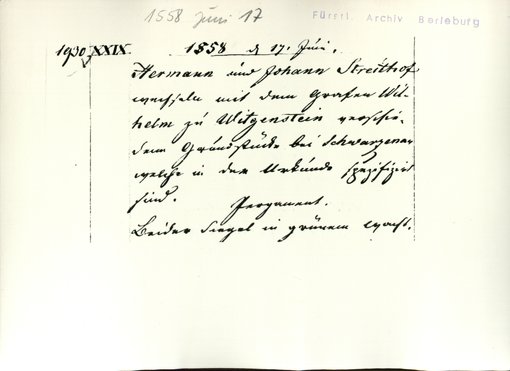 1558 Juni 17
Fürstl. Archiv Berleburg
1930 XXIX. 1558 d 17. Juni.
Hermann und Johann Streithof
wechseln mit dem Grafen Wil-
helm zu Witgenstein verschie-
dene Grundstücke bei Schwarzenau
welche in der Urkunde spezifizirt
sind. Pergament.
Beider Siegel in grünem Wachs.